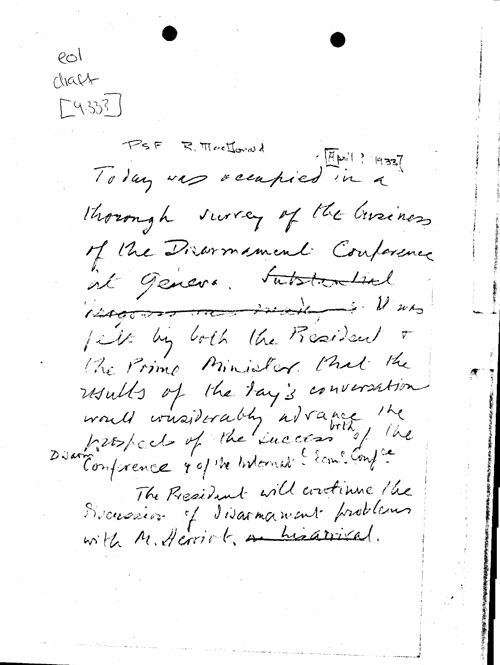 eol
draft
[4-33?]
PSF R. MacDonald
[April ? 1933]
Today was occupied in a
thorough survey of the business
of the Disarmament Conference
at Geneva. Substantial
progress was made It was
felt by both the President &
the Prime Minister that the
results of the day's conversation
would considerably advance the
prospects of the success both of the
Disarm.
Conference & of the Internat.l Econ.c Conf.ce
The President will continue the
discussion of disarmament problems
with M. Herriot. on his arrival.